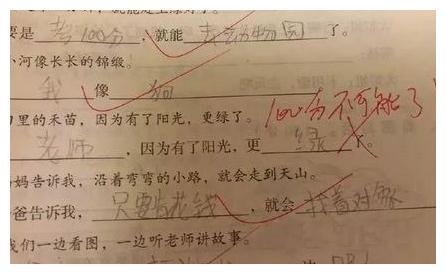 要是 考100分 ，就能 去动物园 了。
小河像长长的锦缎。
我 像 狗
田里的禾苗，因为有了阳光，更绿了。
100分不可能了
老师 ，因为有了阳光，更 绿 了。
妈妈告诉我，沿着弯弯的小路，就会走到天山。
爸告诉我， 只要肯花钱 ，就会 找着对象
我们一边看图，一边听老师讲故事。